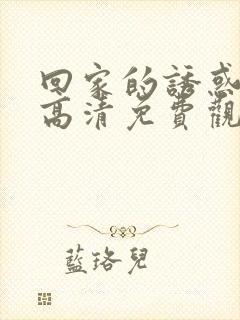 回家的誘惑
高清免費觀
藍珞兒